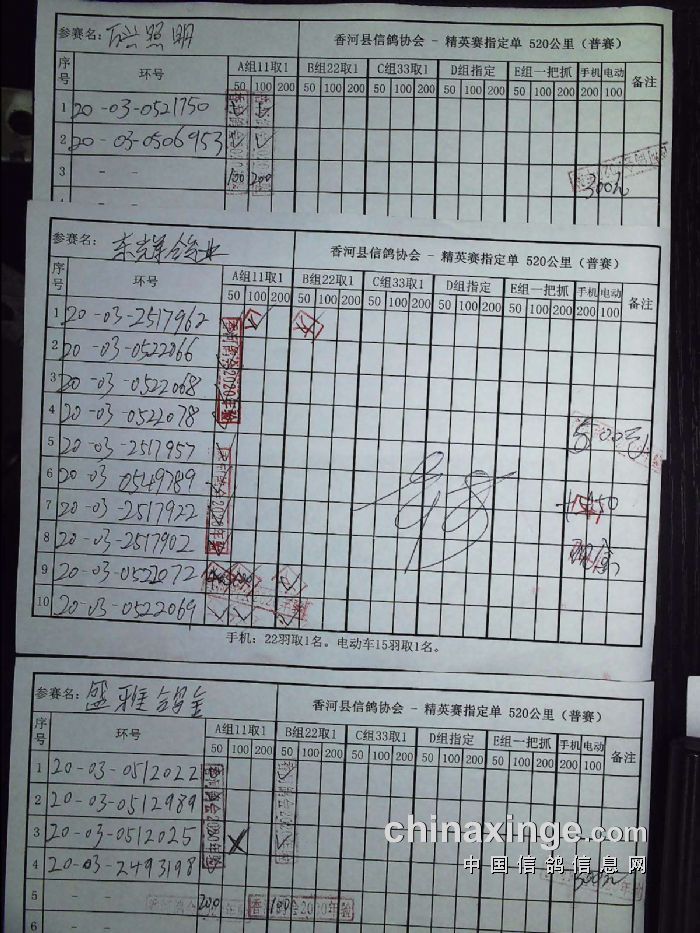 参赛名： 照明 香河县信鸽协会 - 精英赛指定单 520公里（普赛）
序号 环号 A组11取1 B组22取1 C组33取1 D组指定 E组一把抓 手机 电动 备注
50 100 200 50 100 200 50 100 200 50 100 200 50 100 200 200 100
1 20-03-0521750
2 20-03-0506953
3 - - 100 200 300元
参赛名： 东 鸽业 香河县信鸽协会 - 精英赛指定单 520公里（普赛）
序号 环号 A组11取1 B组22取1 C组33取1 D组指定 E组一把抓 手机 电动 备注
50 100 200 50 100 200 50 100 200 50 100 200 50 100 200 200 100
1 20-03-2517962
2 20-03-0522066
3 20-03-0522068
4 20-03-0522078
5 20-03-2517957
6 20-03 0549789
7 20-03-2517922
8 20-03-2517902
9 20-03-0522072
10 20-03-0522069
手机：22羽取1名。电动车15羽取1名。
参赛名： 盛雅鸽舍 香河县信鸽协会 - 精英赛指定单 520公里（普赛）
序号 环号 A组11取1 B组22取1 C组33取1 D组指定 E组一把抓 手机 电动 备注
50 100 200 50 100 200 50 100 200 50 100 200 50 100 200 200 100
1 20-03-0512022
2 20-03-0512989
3 20-03-0512025
4 20-03-2493198
chinaxinge.com
中国信鸽信息网
300元
5 - - 200 100
6 - -